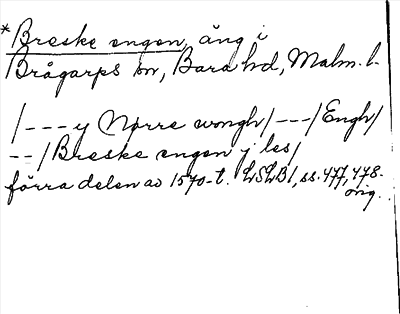 *Breske engen, äng i
Brågarps sn, Bara hd, Malm. l.
/---y Nørre wongh/---/Engh/
--/Breske engen j les/
förra delen av 1570-t. LSLB1, ss. 477, 478.
orig.